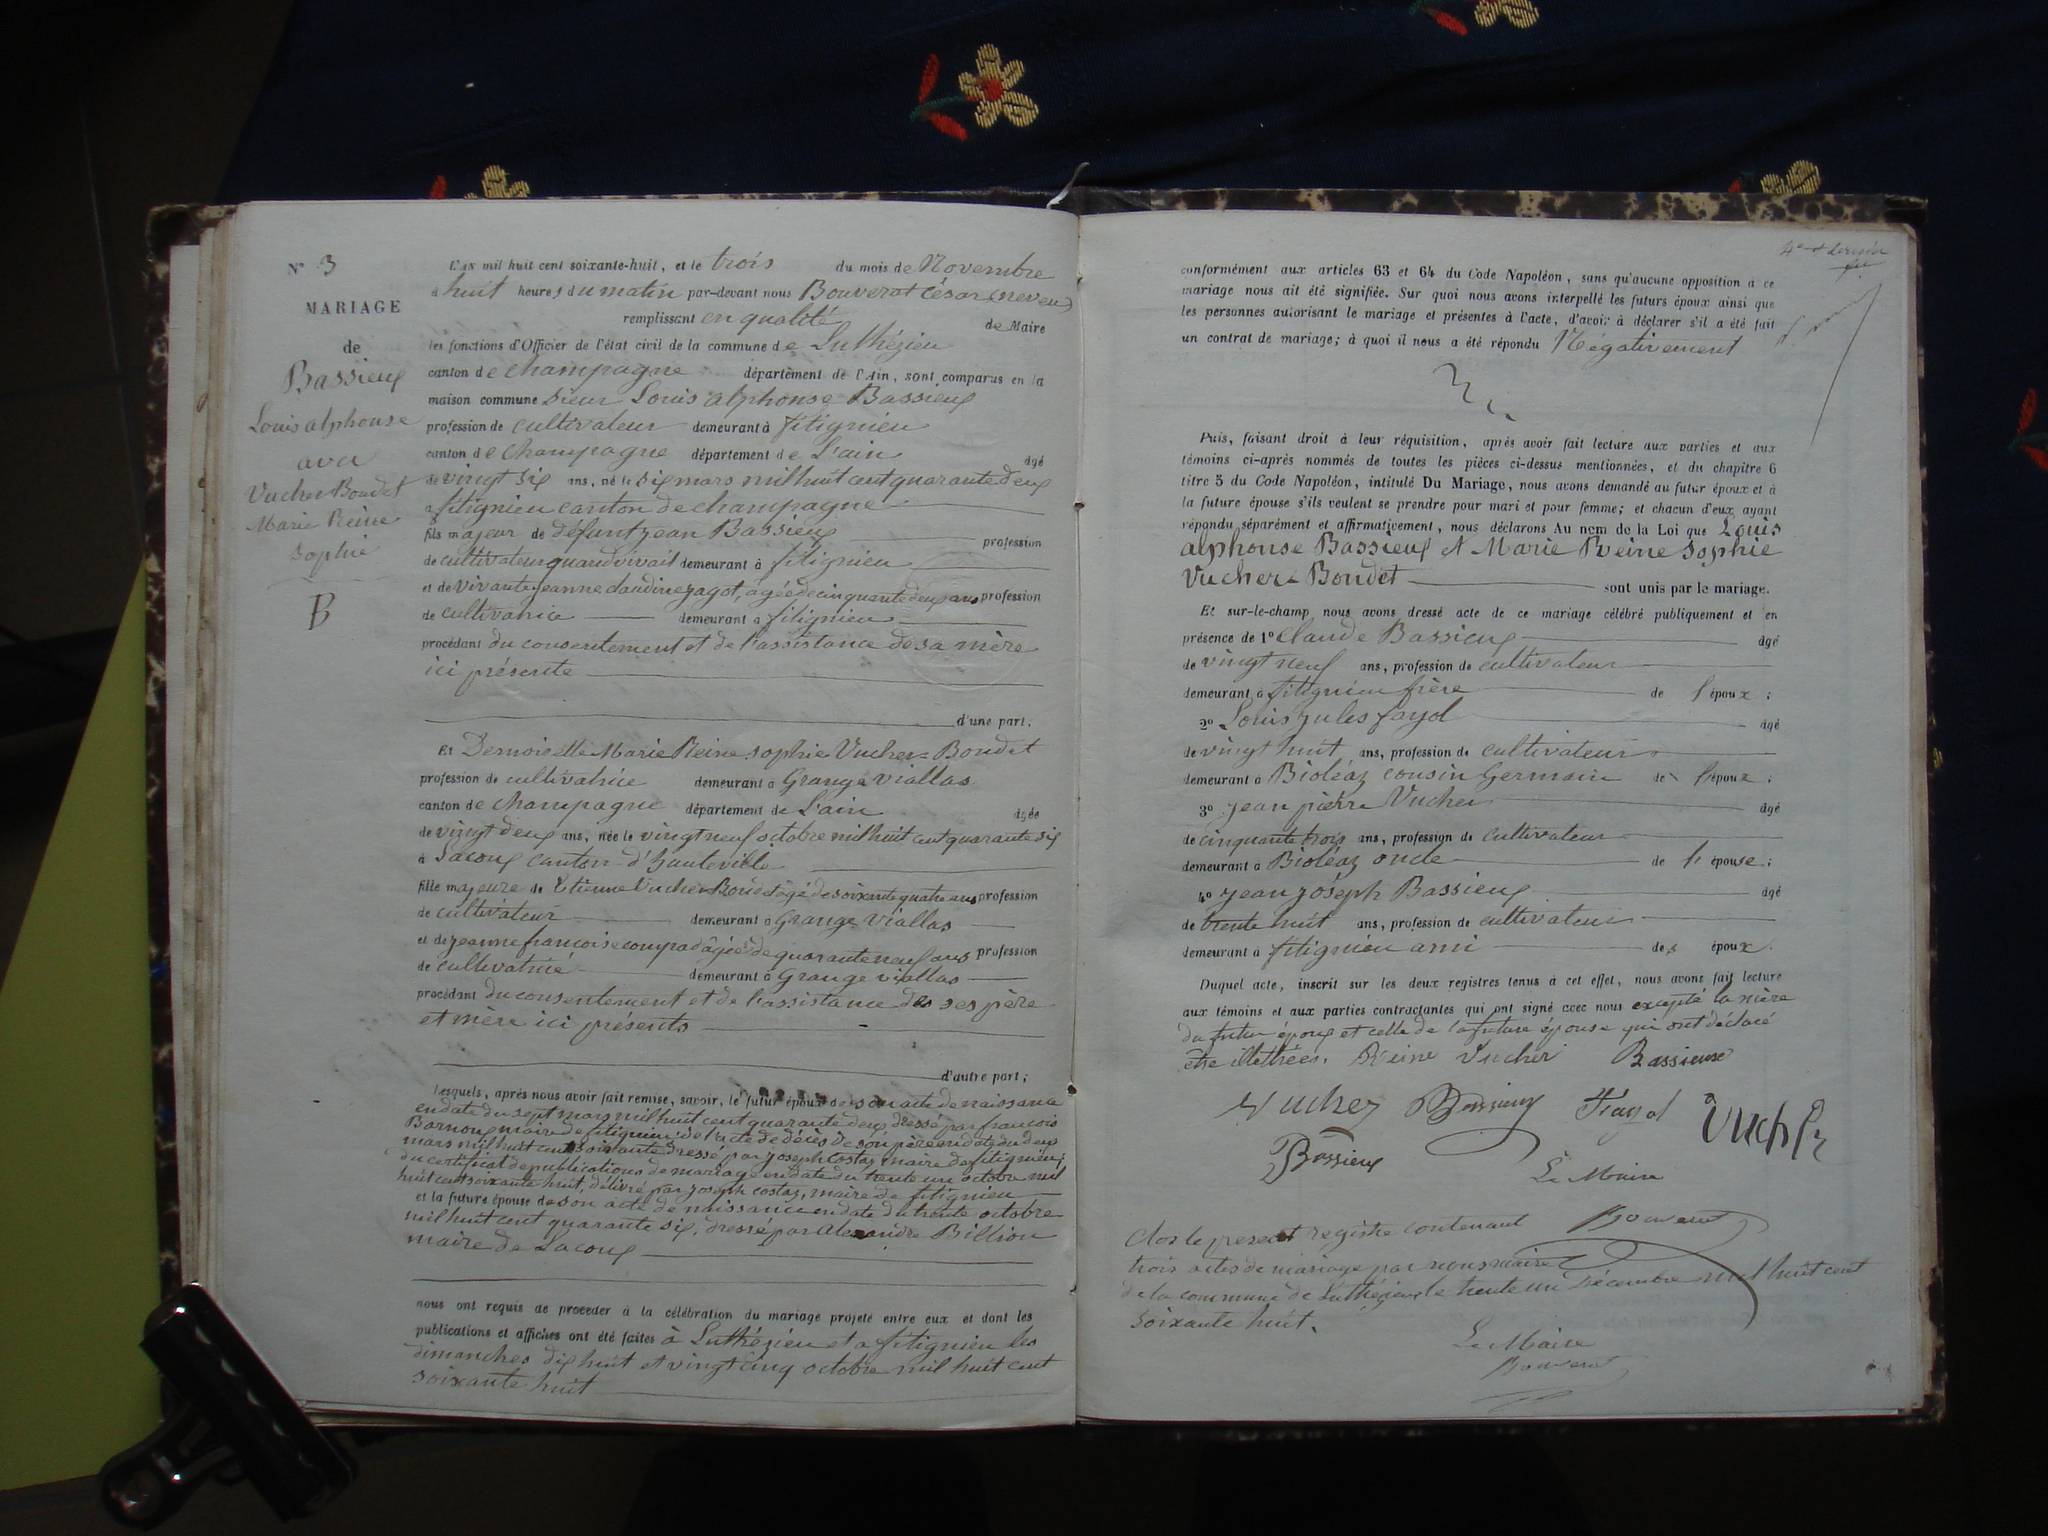 N° 3
MARIAGE
de
Bassieux
Louis alphonse
avec
Vucher Boudet
Marie Reine
Sophie
B
L'an mil huit cent soixante-huit, et le trois du mois de Novembre
à huit heures du matin par-devant nous Bouverat César (neveu)
remplissant en qualité de Maire
les fonctions d'Officier de l'état civil de la commune de Luthézieu
canton de champagne département de l'Ain, sont comparus en la
maison commune Sieur Louis alphonse Bassieux
profession de cultivateur demeurant à fitignieu
canton de champagne département de L'ain âgé
de vingt six ans, né le six mars mil huit cent quarante deux
à fitignieu canton de champagne
fils majeur de défunt jean Bassieux profession
de cultivateur quand vivait demeurant à fitignieu
et de vivante jeanne claudine jagot, âgée de cinquante deux ans profession
de cultivatrice demeurant à fitignieu
procédant du consentement et de l'assistance de sa mère
ici présente
d'une part.
Et Demoiselle Marie Reine Sophie Vucher-Boudet
profession de cultivatrice demeurant à Grange viallas
canton de champagne département de L'ain âgée
de vingt deux ans, née le vingt neuf octobre mil huit cent quarante six
à Lacoux canton d'hauteville
fille majeure de Etienne Vucher Boudet âgé de soixante quatre ans profession
de cultivateur demeurant à Grange Viallas
et de jeanne francoise comprad âgée de quarante neuf ans profession
de cultivatrice demeurant à Grange viallas
procédant du consentement et de l'assistance de ses père
et mère ici présents
d'autre part;
Lesquels, après nous avoir fait remise, savoir, le futur époux de son acte de naissance
en date du sept mars mil huit cent quarante deux dressé par françois
Barnoux maire de fitignieu; de l'acte de décès de son père en date du deux
mars mil huit cent soixante dressé par joseph costaz, maire de fitignieu;
du certificat de publications de mariage en date du trente un octobre mil
huit cent soixante huit, délivré par joseph costaz, maire de fitignieu
et la future épouse de son acte de naissance en date du trente octobre
mil huit cent quarante six, dressé par Alexandre Billion
maire de Lacoux
nous ont requis de procéder à la célébration du mariage projeté entre eux et dont les
publications et affiches ont été faites à Luthézieu et à fitignieu les
dimanches dix huit et vingt cinq octobre mil huit cent
soixante huit
4e et dernier
conformément aux articles 63 et 64 du Code Napoléon, sans qu'aucune opposition à ce
mariage nous ait été signifiée. Sur quoi nous avons interpellé les futurs époux ainsi que
les personnes autorisant le mariage et présentes à l'acte, d'avoir à déclarer s'il a été fait
un contrat de mariage; à quoi il nous a été répondu Négativement
Puis, faisant droit à leur réquisition, après avoir fait lecture aux parties et aux
témoins ci-après nommés de toutes les pièces ci-dessus mentionnées, et du chapitre 6
titre 5 du Code Napoléon, intitulé Du Mariage, nous avons demandé au futur époux et à
la future épouse s'ils veulent se prendre pour mari et pour femme; et chacun d'eux ayant
répondu séparément et affirmativement, nous déclarons Au nom de la Loi que Louis
alphonse Bassieux et Marie Reine Sophie
Vucher-Boudet sont unis par le mariage.
Et sur-le-champ nous avons dressé acte de ce mariage célébré publiquement et en
présence de 1° Claude Bassieux âgé
de vingt neuf ans, profession de cultivateur
demeurant à fitignieu frère de l'époux;
2° Louis jules fayol âgé
de vingt huit ans, profession de cultivateur
demeurant à Bioléaz cousin Germain de l'époux;
3° jean pierre Vucher âgé
de cinquante trois ans, profession de cultivateur
demeurant à Bioléaz oncle de l'épouse;
4° jean joseph Bassieux âgé
de trente huit ans, profession de cultivateur
demeurant à fitignieu ami des époux.
Duquel acte, inscrit sur les deux registres tenus à cet effet, nous avons fait lecture
aux témoins et aux parties contractantes qui ont signé avec nous excepté la mère
du futur époux et celle de la future épouse qui ont déclaré
être illettrées. Reine Vucher Bassieux
Vucher Bassieux Fayol Vucher
Bassieux
Le Maire
Bouverat
Clos le present registre contenant
trois actes de mariage par nous maire
de la commune de Luthézieu le trente un Décembre mil huit cent
soixante huit.
Le Maire
Bouverat